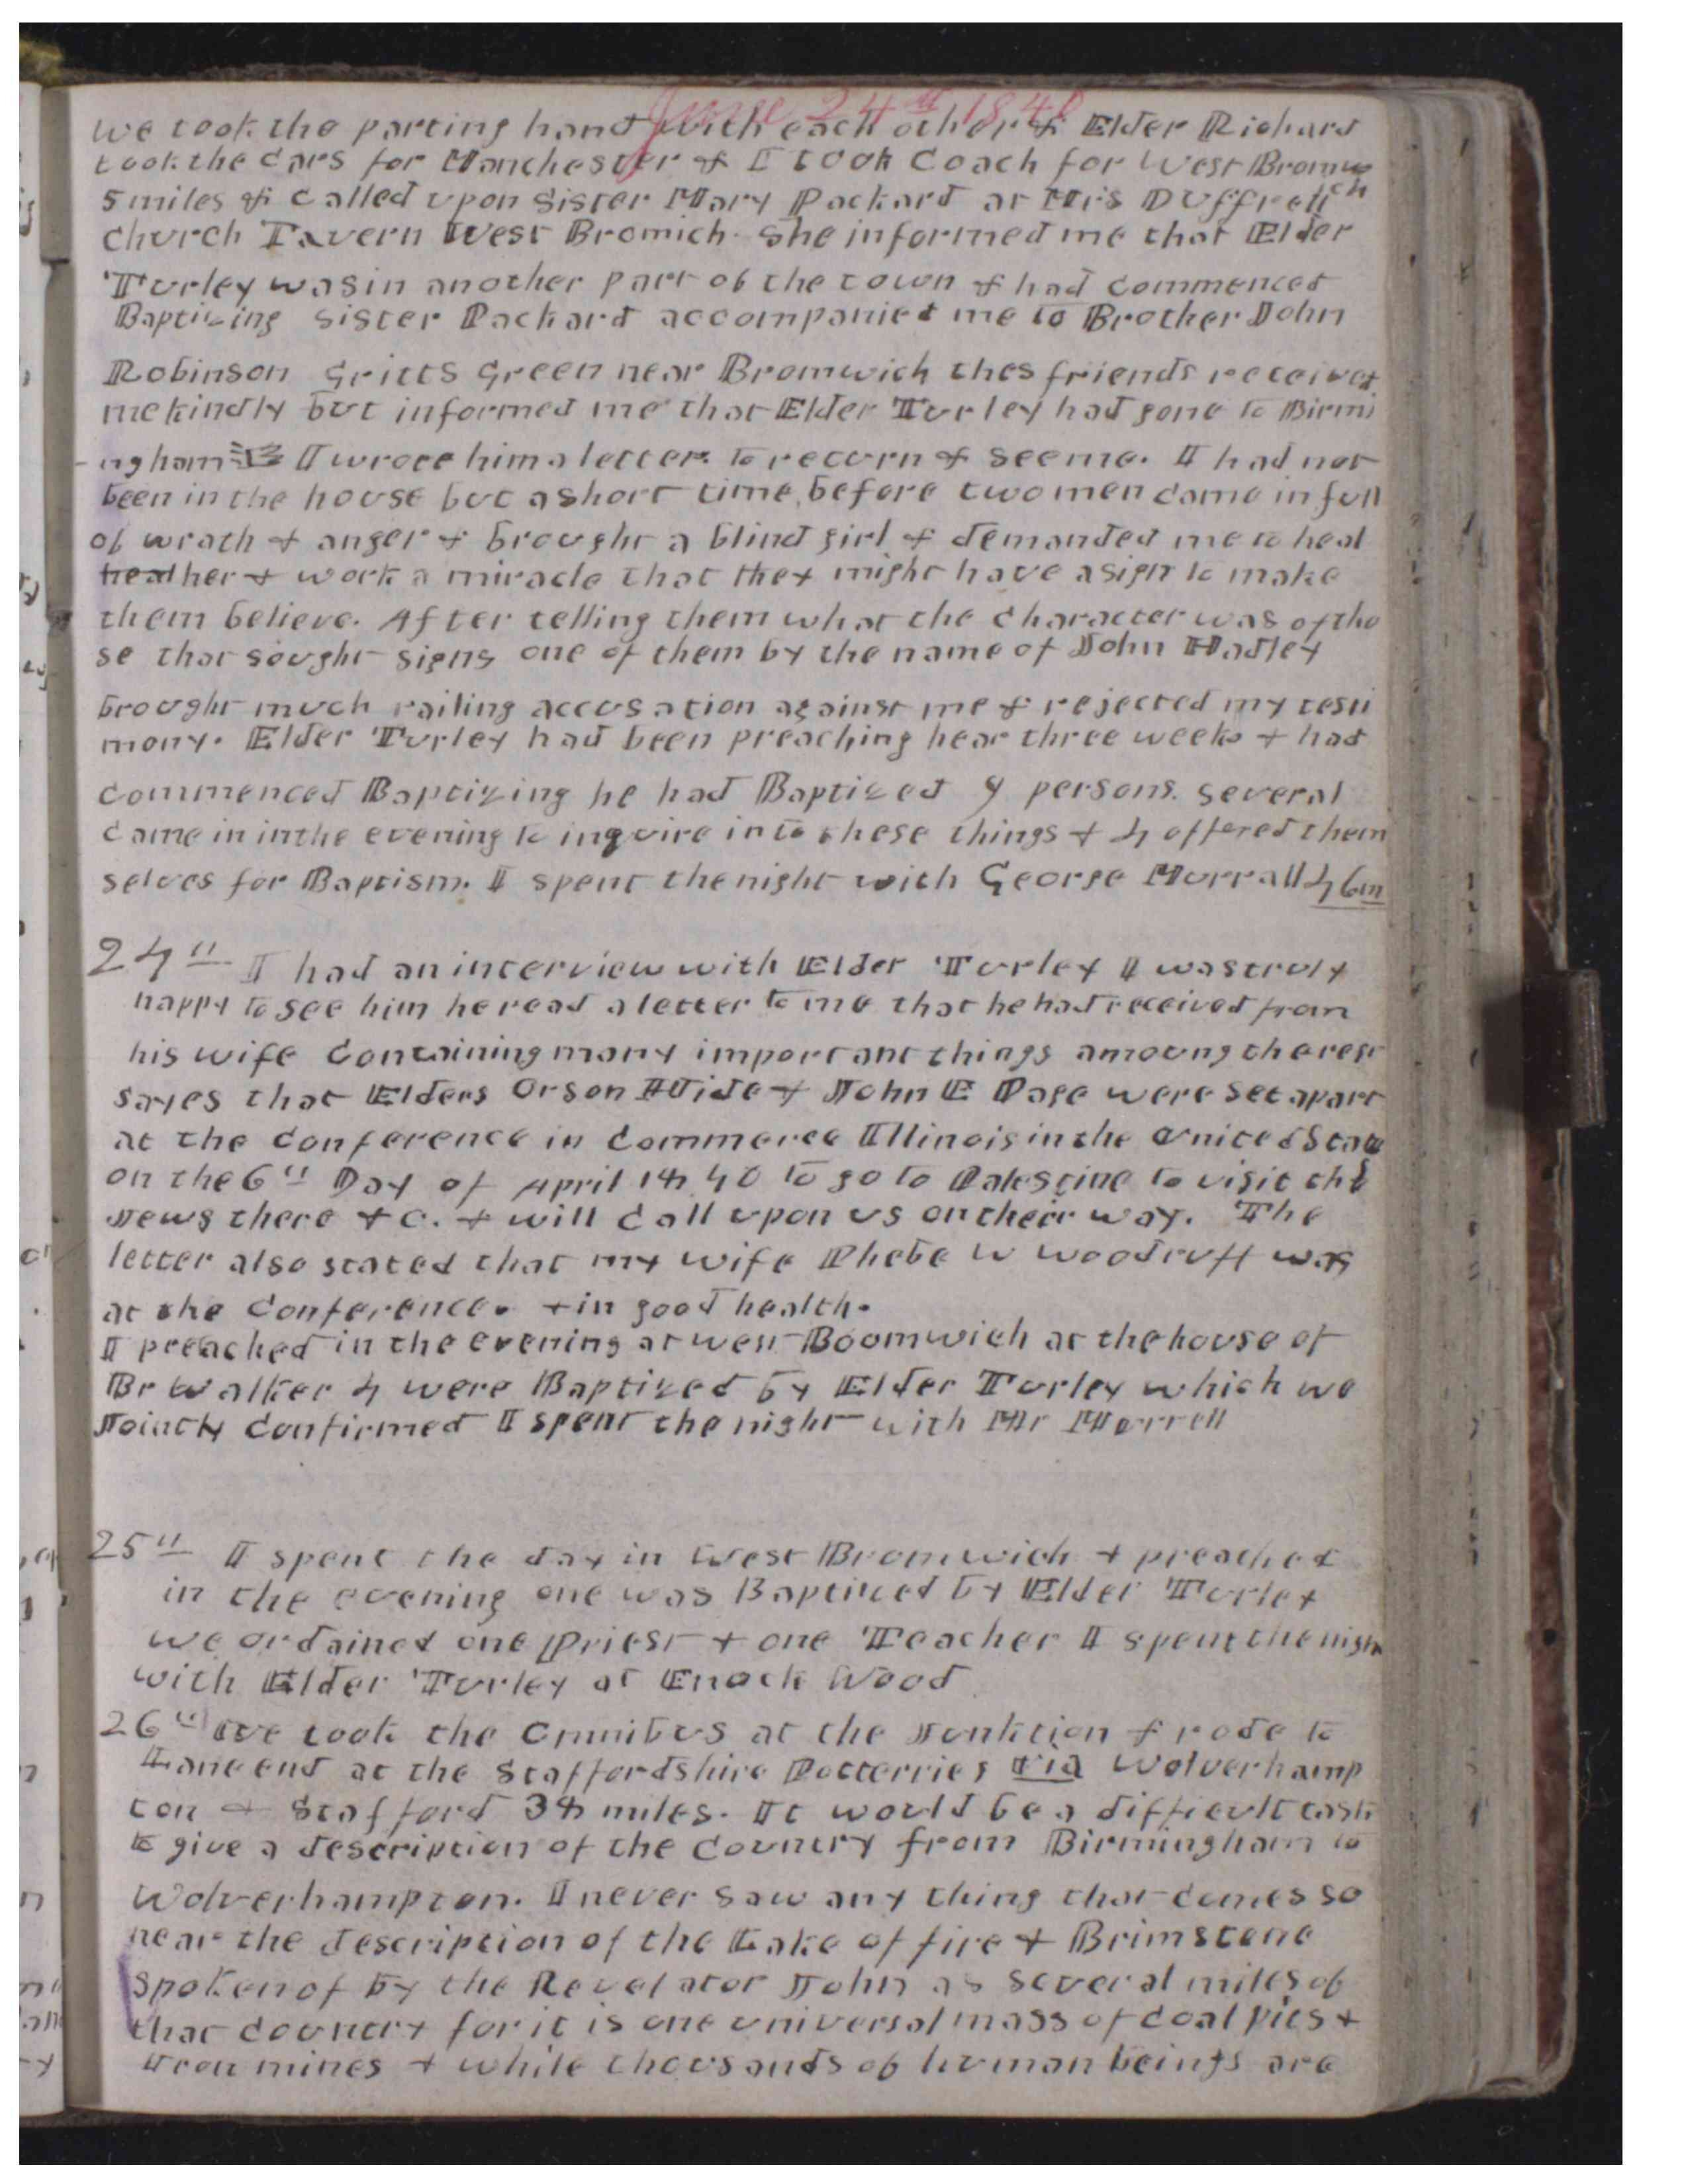 June 24th 1840
we took the parting hand with each other & Elder Richard
took the cars for Manchester & I took Coach for West Bromw
ich
5 miles & called upon Sister Mary Packard at Mrs Duffrell
Church Tavern West Bromich. She informed me that Elder
Turley was in another part of the town & had commenced
Baptizing Sister Packard accompanied me to Brother John
Robinson Gritts Green near Bromwich thes friends received
me kindly but informed me that Elder Turley had gone to Birmi
-ngham I wrote him a letter. to return & see me. I had not
been in the house but a short time before two men came in full
of wrath & anger & brought a blind girl & demanded me to heal
heal her & work a miracle that they might have a sign to make
them believe. After telling them what the character was of tho
se that sought signs one of them by the name of John Hadley
brought much railing accusation against me & rejected my testi
mony. Elder Turley had been preaching hear three weeks & had
commenced Baptizing he had Baptized 9 persons. several
came in in the evening to inquire into these things & 4 offered them
selves for Baptism. I spent the night with George Morrall 46 m
24th I had an interview with Elder Turley I was truly
happy to see him he read a letter to me that he had received from
his wife Containing many important things amoung the rest
sayes that Elders Orson Hide & John E Page were set apart
at the Conference in Commerce Illinois in the United State
on the 6th Day of April 1840 to go to Palestine to visit the
Jews there & c. & will call upon us on their way. The
letter also stated that my wife Phebe W Woodruff was
at the Conference. & in good health.
I preached in the evening at west Boomwich at the house of
Br Walker 4 were Baptized by Elder Turley which we
Jointly Confirmed I spent the night with Mr Morrell
25th I spent the day in West Bromwich & preached
in the evening one was Baptized by Elder Turley
we ordained one Priest & one Teacher I spent the nigh
with Elder Turley at Enock Wood
26th We took the Omnibus at the Junktion & rode to
Lane end at the Staffordshire Potterries via Wolverhamp
ton & Stafford 38 miles. It would be a difficult task
to give a description of the Country from Birmingham to
Wolverhampton. I never saw any thing that comes so
near the description of the Lake of fire & Brimstone
spoken of by the Revelator John as several miles of
that country for it is one universal mass of coal pits &
Iron mines & while thousands of human beings are